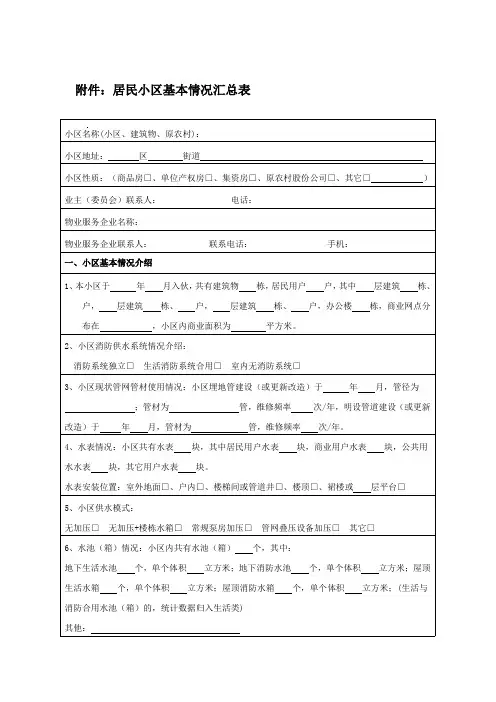 附件：居民小区基本情况汇总表
小区名称(小区、建筑物、原农村)：
小区地址：____区____街道____
小区性质：（商品房□、单位产权房□、集资房□、原农村股份公司□、其它□____）
业主（委员会）联系人： 电话：
物业服务企业名称：
物业服务企业联系人： 联系电话： 手机：
一、小区基本情况介绍
1、本小区于____年__月入伙，共有建筑物__栋，居民用户__户，其中__层建筑__栋、
__户，__层建筑__栋、__户，__层建筑__栋、__户，办公楼__栋，商业网点分
布在____，小区内商业面积为____平方米。
2、小区消防供水系统情况介绍：
消防系统独立□ 生活消防系统合用□ 室内无消防系统□
3、小区现状管网管材使用情况：小区埋地管建设（或更新改造）于____年__月，管径为
____；管材为____管，维修频率__次/年，明设管道建设（或更新
改造）于__年__月，管材为____管，维修频率__次/年。
4、水表情况：小区共有水表__块，其中居民用户水表__块，商业用户水表__块，公共用
水水表__块，其它用户水表__块。
水表安装位置：室外地面□、户内□、楼梯间或管道井□、楼顶□、裙楼或__层平台□
5、小区供水模式：
无加压□ 无加压+楼栋水箱□ 常规泵房加压□ 管网叠压设备加压□ 其它□
6、水池（箱）情况：小区内共有水池（箱）__个，其中：
地下生活水池__个，单个体积__立方米；地下消防水池__个，单个体积__立方米；屋顶
生活水箱__个，单个体积__立方米；屋顶消防水箱__个，单个体积__立方米；(生活与
消防合用水池（箱）的，统计数据归入生活类)
其他：____